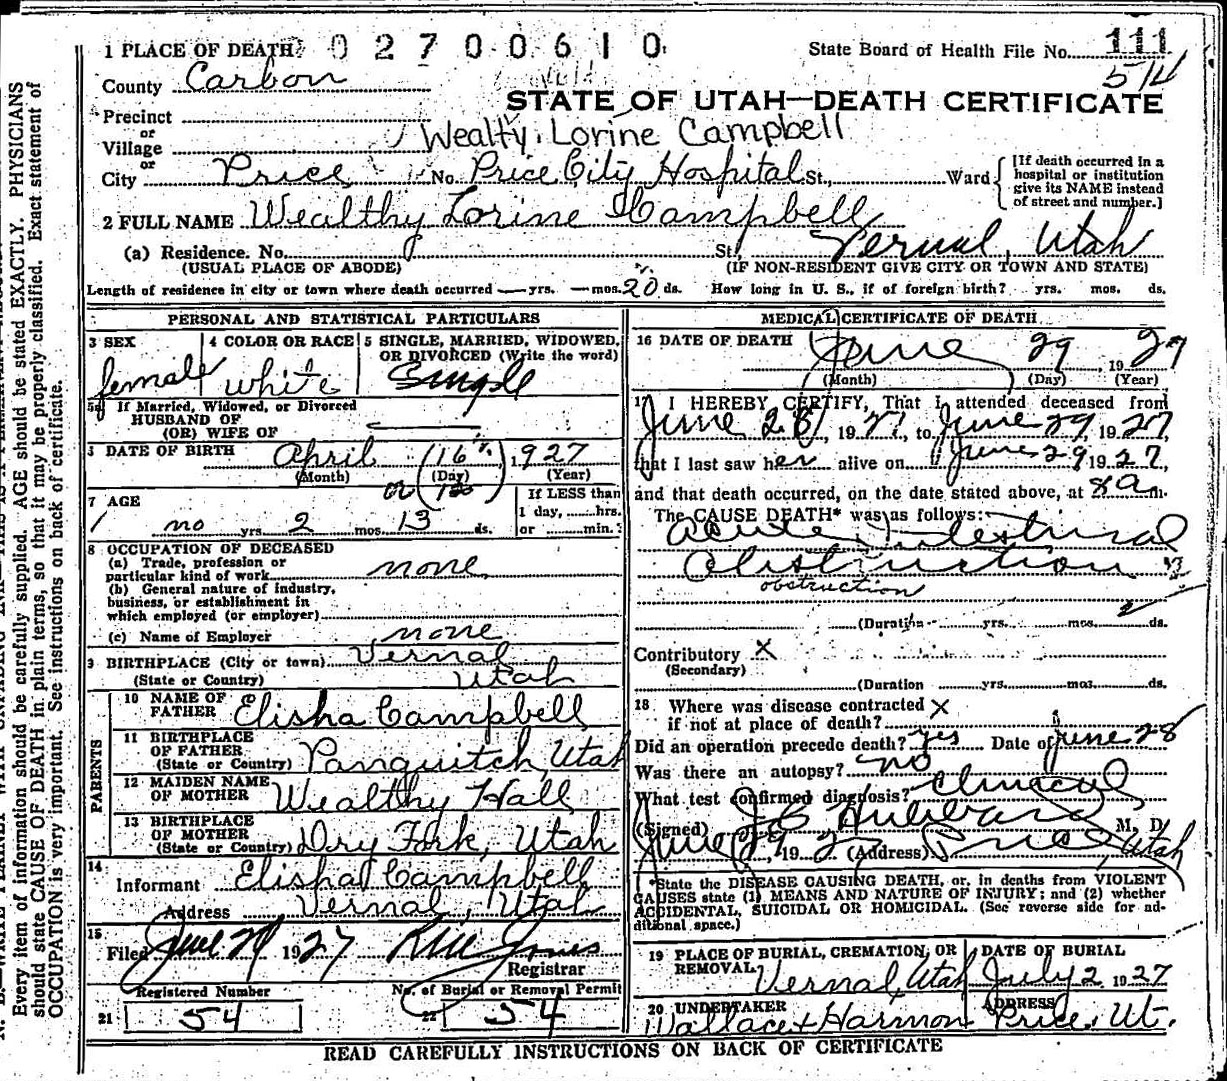 1 PLACE OF DEATH 0 2 7 0 0 6 1 0 State Board of Health File No. 111
County Carbon 514
STATE OF UTAH—DEATH CERTIFICATE
Precinct
or
Village Wealthy Lorine Campbell
or
City Price No. Price City Hospital St., Ward
[If death occurred in a
hospital or institution
give its NAME instead
of street and number.]
2 FULL NAME Wealthy Lorine Campbell
(a) Residence. No. St. Vernal, Utah
(USUAL PLACE OF ABODE) (IF NON-RESIDENT GIVE CITY OR TOWN AND STATE)
Length of residence in city or town where death occurred — yrs. — mos. 20 ds. How long in U. S., if of foreign birth? yrs. mos. ds.
PERSONAL AND STATISTICAL PARTICULARS
3 SEX
female
4 COLOR OR RACE
white
5 SINGLE, MARRIED, WIDOWED,
OR DIVORCED (Write the word)
Single
5a If Married, Widowed, or Divorced
HUSBAND OF
(OR) WIFE OF
DATE OF BIRTH April (16) 1927
(Month) (Day) (Year)
or
7 AGE
no yrs. 2 mos. 13 ds.
If LESS than
1 day, hrs.
or min.
8 OCCUPATION OF DECEASED
(a) Trade, profession or
particular kind of work none
(b) General nature of industry,
business, or establishment in
which employed (or employer)
(c) Name of Employer none
9 BIRTHPLACE (City or town) Vernal
(State or Country) Utah
PARENTS
10 NAME OF
FATHER Elisha Campbell
11 BIRTHPLACE
OF FATHER
(State or Country) Panguitch, Utah
12 MAIDEN NAME
OF MOTHER Wealthy Hall
13 BIRTHPLACE
OF MOTHER
(State or Country) Dry Fork, Utah
14
Informant Elisha Campbell
Address Vernal, Utah
15
Filed June 29 1927
Registrar
Registered Number
21 54
No. of Burial or Removal Permit
22 54
MEDICAL CERTIFICATE OF DEATH
16 DATE OF DEATH June 29 1927
(Month) (Day) (Year)
17 I HEREBY CERTIFY, That I attended deceased from
June 28, 1927, to June 29, 1927,
that I last saw her alive on June 29 1927,
and that death occurred, on the date stated above, at 8 a m.
The CAUSE DEATH* was as follows:
Acute Intestinal
Obstruction
obstruction
(Duration yrs. mos. 2 ds.
Contributory X
(Secondary)
(Duration yrs. mos. ds.
18 Where was disease contracted X
if not at place of death?
Did an operation precede death? yes Date of June 28
Was there an autopsy? no
What test confirmed diagnosis? Clinical
(Signed) M. D.
June 29, 1927 (Address) Price, Utah
*State the DISEASE CAUSING DEATH, or, in deaths from VIOLENT
CAUSES state (1) MEANS AND NATURE OF INJURY; and (2) whether
ACCIDENTAL, SUICIDAL OR HOMICIDAL. (See reverse side for ad-
ditional space.)
19 PLACE OF BURIAL, CREMATION, OR
REMOVAL Vernal, Utah
DATE OF BURIAL
July 2 1927
20 UNDERTAKER
Wallace & Harmon
ADDRESS
Price, Ut.
READ CAREFULLY INSTRUCTIONS ON BACK OF CERTIFICATE
Every item of information should be carefully supplied. AGE should be stated EXACTLY. PHYSICIANS
should state CAUSE OF DEATH in plain terms, so that it may be properly classified. Exact statement of
OCCUPATION is very important. See instructions on back of certificate.